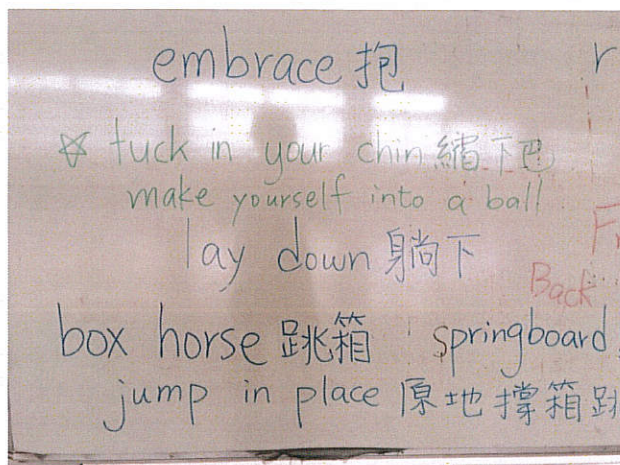 embrace 抱
☆ tuck in your chin 縮下巴
make yourself into a ball
lay down 躺下
Back
box horse 跳箱 springboard
jump in place 原地撐箱跳